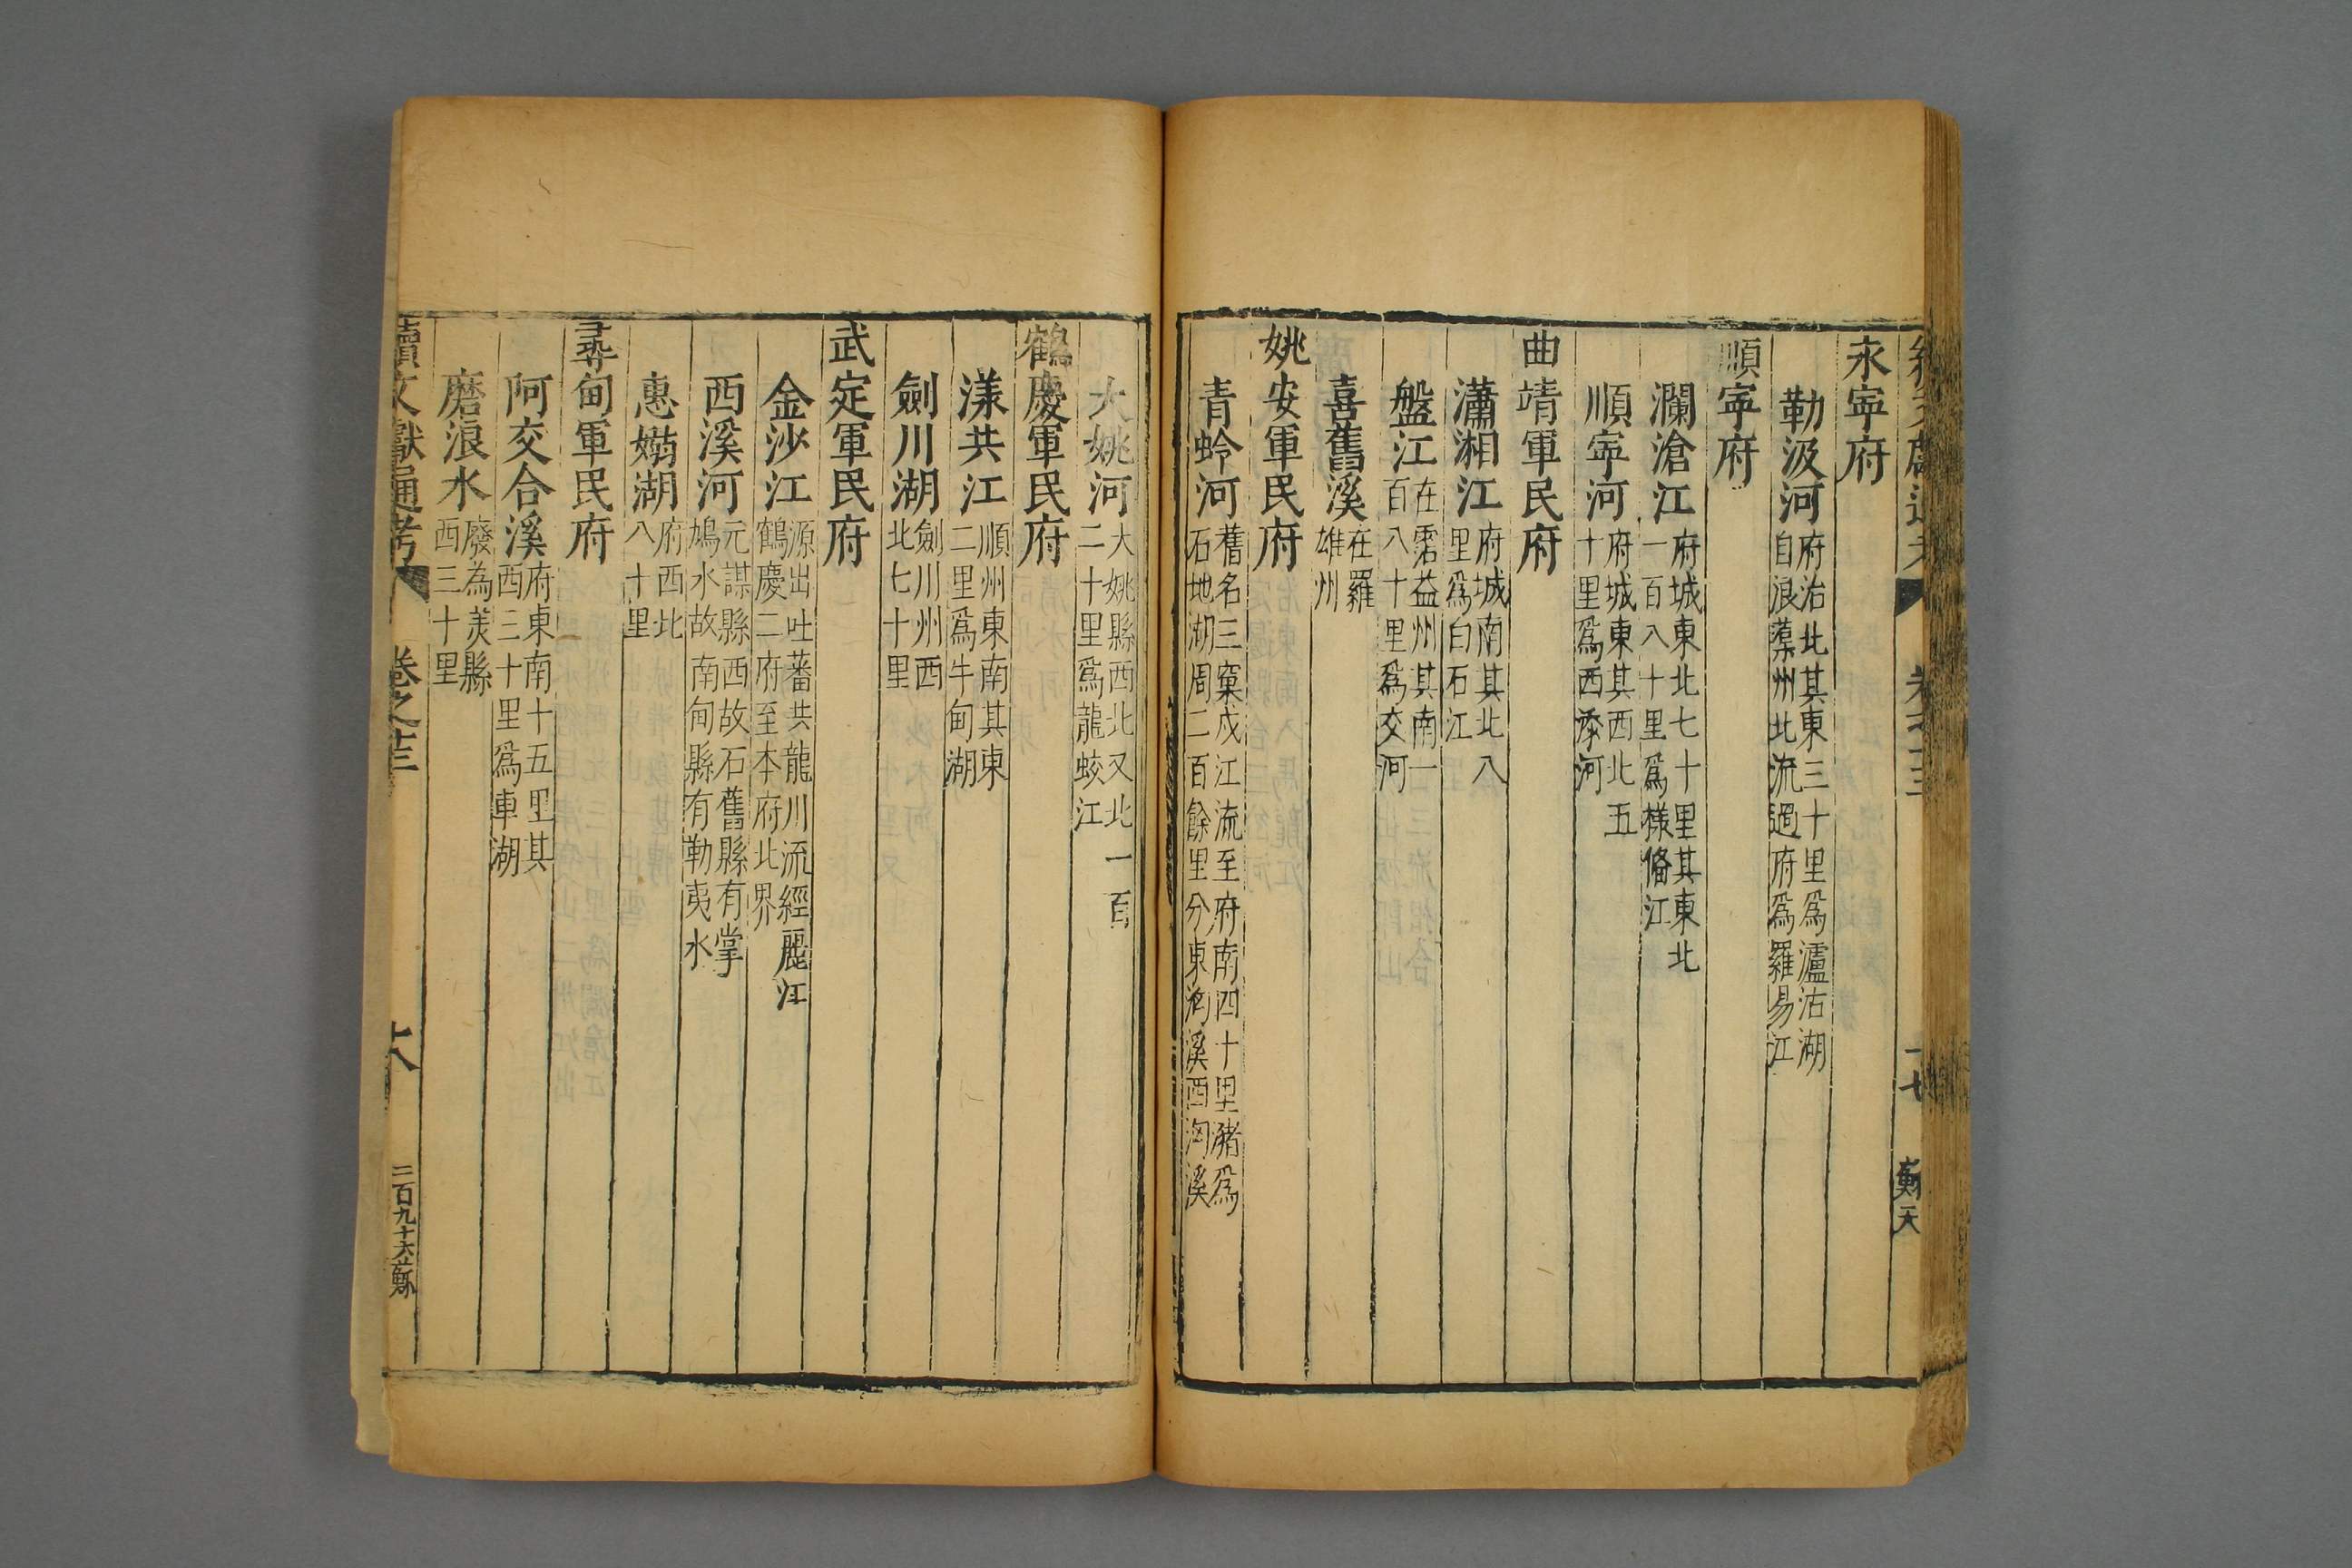 永寧府
勒汲河府治北其東三十里爲瀘沽湖
自浪蕖州北流過府爲羅易江
順寧府
瀾滄江府城東北七十里其東北
一百八十里爲樣備江
順寧河府城東其西北五
十里爲西添河
曲靖軍民府
瀟湘江府城南其北八
里爲白石江
盤江在霑益州其南一
百八十里爲交河
喜舊溪在羅
雄州
姚安軍民府
青蛉河舊名三窠戍江流至府南四十里豬爲
石地湖周二百餘里分東溪酉溪
大姚河大姚縣西北又北一百
二十里爲龍蛟江
鶴慶軍民府
漾共江順州東南其東
二里爲牛甸湖
劍川湖劍川州西
北七十里
武定軍民府
金沙江源出吐蕃共龍川流經麗江
鶴慶二府至本府北界
西溪河元謀縣西故石舊縣有掌
鳩水故南甸縣有勒夷水
惠嫋湖府西北
八十里
尋甸軍民府
阿交合溪府東南十五里其
西三十里爲車湖
磨浪水廢為美縣
西三十里
續文獻通考 卷之 十八 二百九十六 蘇